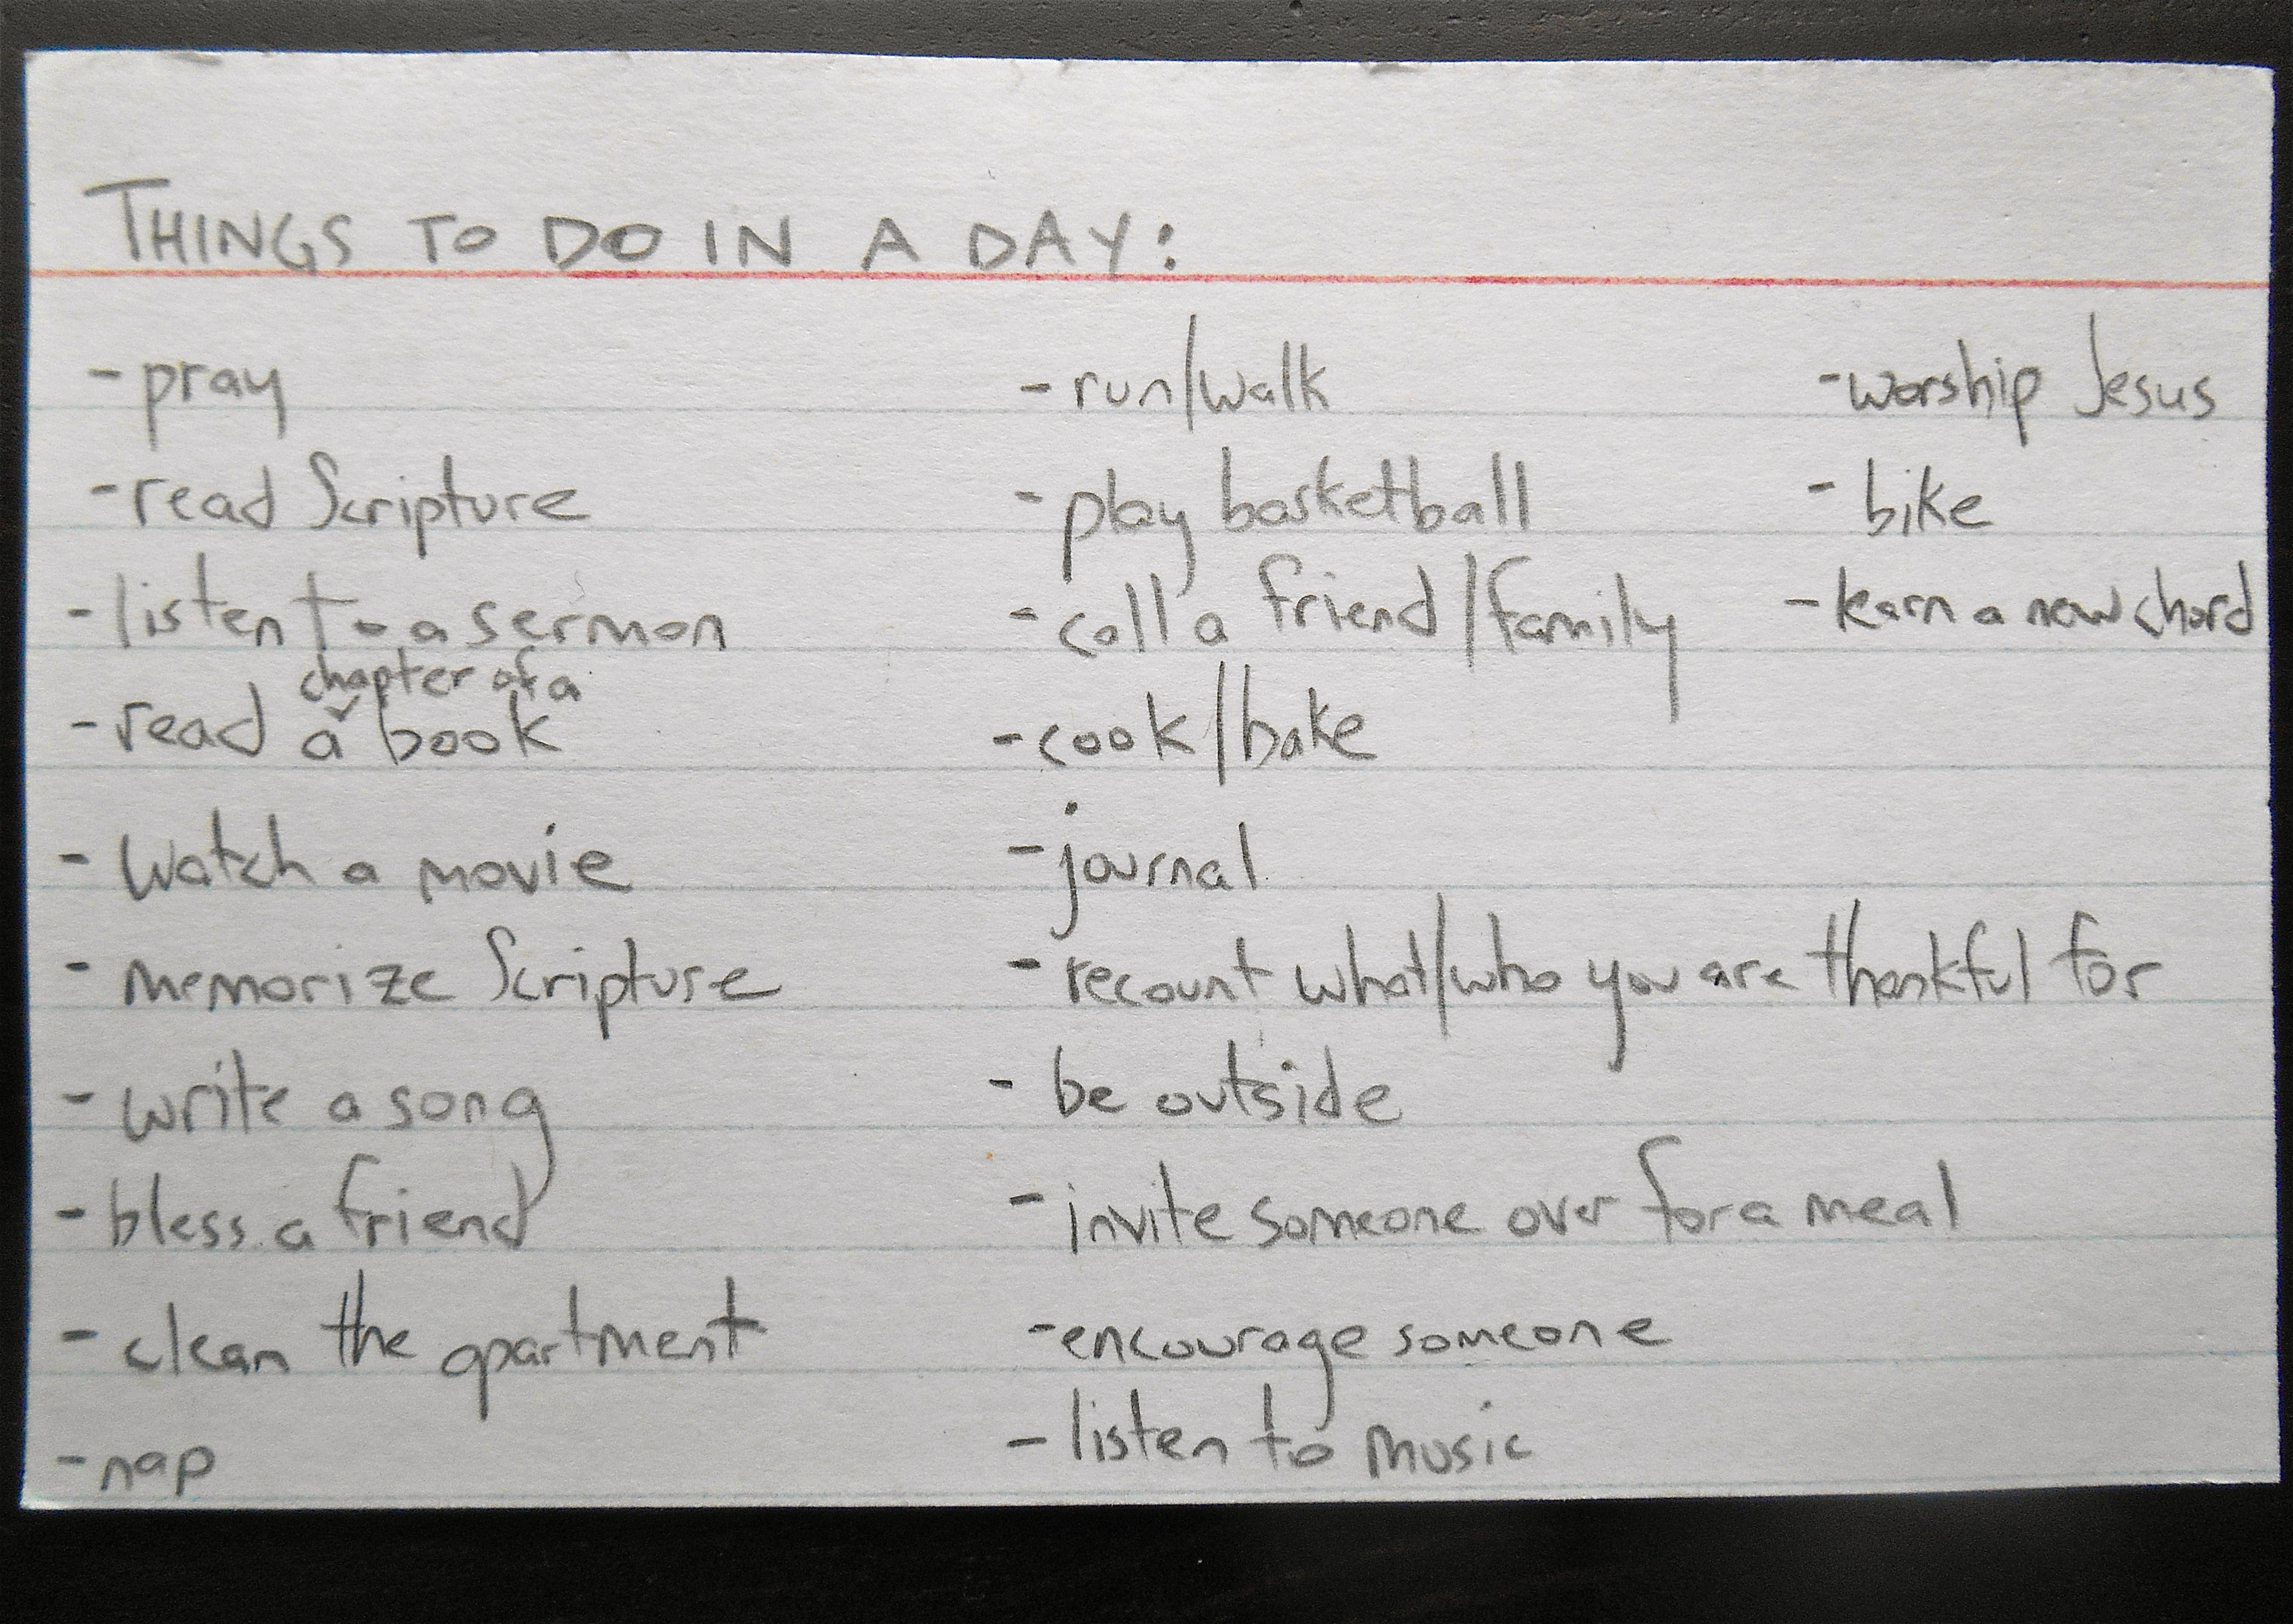 THINGS TO DO IN A DAY:
- pray
- read Scripture
- listen to a sermon
chapter of a
- read a book
- watch a movie
- memorize Scripture
- write a song
- bless a friend
- clean the apartment
- nap
- run/walk
- play basketball
- call a friend/family
- cook/bake
- journal
- recount what/who you are thankful for
- be outside
- invite someone over for a meal
- encourage someone
- listen to music
- worship Jesus
- bike
- learn a new chord